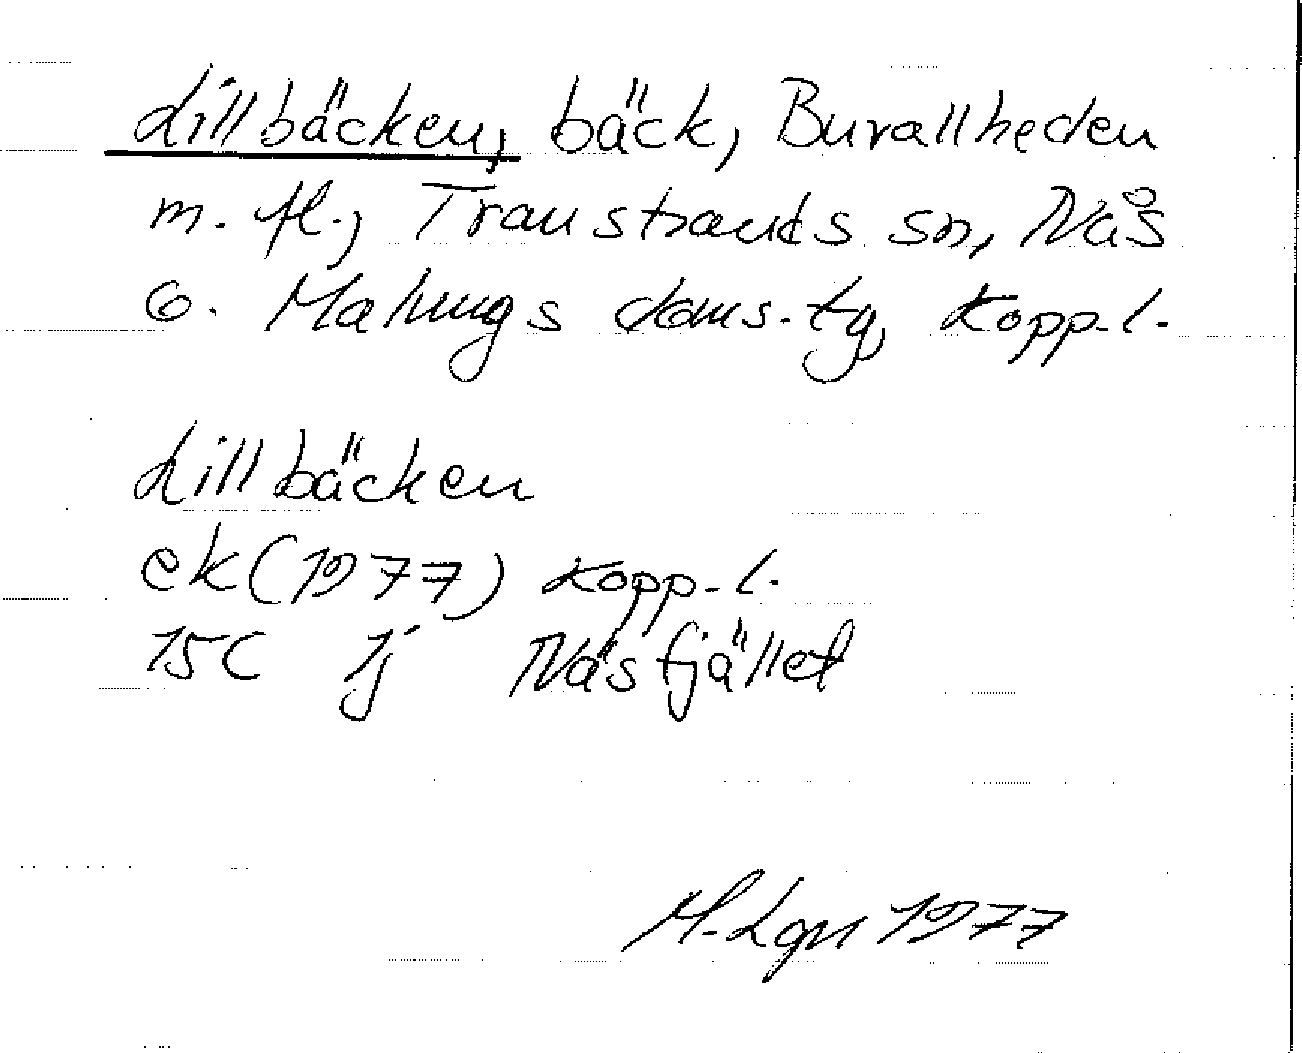 Lillbäcken, bäck, Burallheden
m. fl., Transtrands sn, Nås
o. Malungs doms. tg, Kopp. l.
Lillbäcken
ek (1977) Kopp. l.
15C 1j Näsfjället
M. Lgn 1977